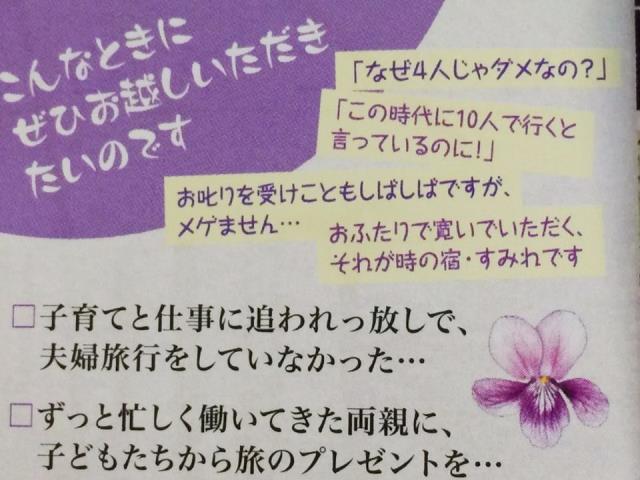 こんなときに
ぜひお越しいただき
たいのです
「なぜ4人じゃダメなの？」
「この時代に10人で行くと
言っているのに！」
お叱りを受けこともしばしばですが、
メゲません…
おふたりで寛いでいただく、
それが時の宿・すみれです
□子育てと仕事に追われっ放しで、
夫婦旅行をしていなかった…
□ずっと忙しく働いてきた両親に、
子どもたちから旅のプレゼントを…